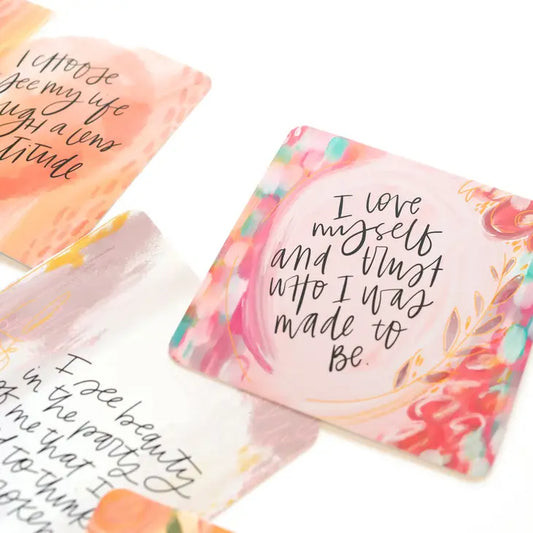 I CHOOSE
see my life
a lens
I love
myself
and trust
who I was
made to
Be.
I see beauty
in the parts
of me that I
to think